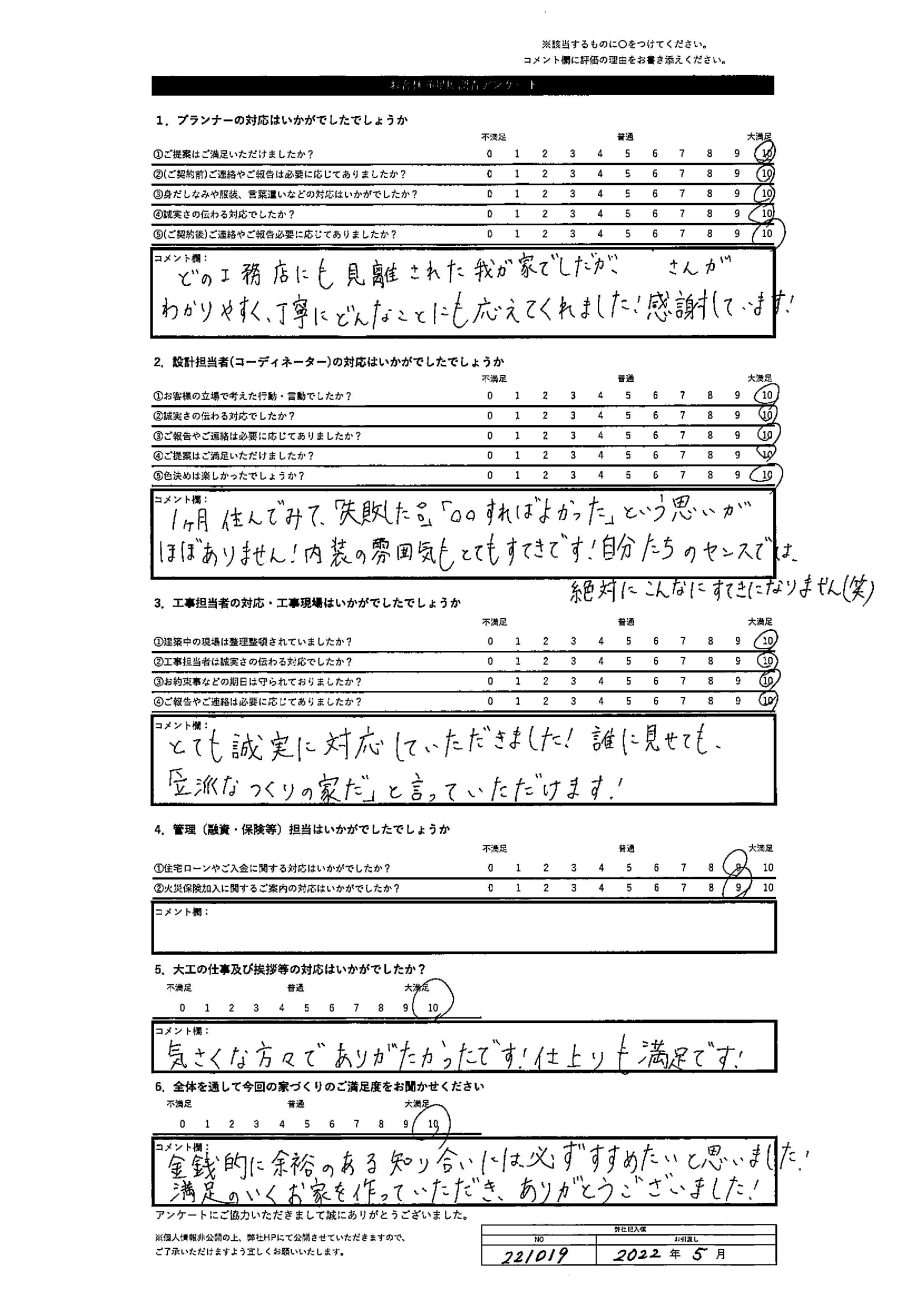 ※該当するものに〇をつけてください。
コメント欄に評価の理由をお書き添えください。
お客様満足度調査アンケート
1．プランナーの対応はいかがでしたでしょうか
不満足 普通 大満足
①ご提案はご満足いただけましたか？ 0 1 2 3 4 5 6 7 8 9 10
②(ご契約前)ご連絡やご報告は必要に応じてありましたか？ 0 1 2 3 4 5 6 7 8 9 10
③身だしなみや服装、言葉遣いなどの対応はいかがでしたか？ 0 1 2 3 4 5 6 7 8 9 10
④誠実さの伝わる対応でしたか？ 0 1 2 3 4 5 6 7 8 9 10
⑤(ご契約後)ご連絡やご報告必要に応じてありましたか？ 0 1 2 3 4 5 6 7 8 9 10
コメント欄：
どの工務店にも見離された我が家でしだが、 さんが
わかりやすく、丁寧にどんなことにも応えてくれました！感謝しています！
2．設計担当者(コーディネーター)の対応はいかがでしたでしょうか
不満足 普通 大満足
①お客様の立場で考えた行動・言動でしたか？ 0 1 2 3 4 5 6 7 8 9 10
②誠実さの伝わる対応でしたか？ 0 1 2 3 4 5 6 7 8 9 10
③ご報告やご連絡は必要に応じてありましたか？ 0 1 2 3 4 5 6 7 8 9 10
④ご提案はご満足いただけましたか？ 0 1 2 3 4 5 6 7 8 9 10
⑤色決めは楽しかったでしょうか？ 0 1 2 3 4 5 6 7 8 9 10
コメント欄：
1ヶ月住んでみて、「失敗した。」「〇〇すればよかった」という思いが
ほぼありません！内装の雰囲気もとてもすてきです！自分たちのセンスでは、
絶対にこんなにすてきになりません(笑)
3．工事担当者の対応・工事現場はいかがでしたでしょうか
不満足 普通 大満足
①建築中の現場は整理整頓されていましたか？ 0 1 2 3 4 5 6 7 8 9 10
②工事担当者は誠実さの伝わる対応でしたか？ 0 1 2 3 4 5 6 7 8 9 10
③お約束事などの期日は守られておりましたか？ 0 1 2 3 4 5 6 7 8 9 10
④ご報告やご連絡は必要に応じてありましたか？ 0 1 2 3 4 5 6 7 8 9 10
コメント欄：
とても誠実に対応していただきました！誰に見せても、
「立派なつくりの家だ」と言っていただけます！
4．管理（融資・保険等）担当はいかがでしたでしょうか
不満足 普通 大満足
①住宅ローンやご入金に関する対応はいかがでしたか？ 0 1 2 3 4 5 6 7 8 9 10
②火災保険加入に関するご案内の対応はいかがでしたか？ 0 1 2 3 4 5 6 7 8 9 10
コメント欄：
5．大工の仕事及び挨拶等の対応はいかがでしたか？
不満足 普通 大満足
0 1 2 3 4 5 6 7 8 9 10
コメント欄：
気さくな方々でありがたかったです！仕上りも満足です！
6．全体を通して今回の家づくりのご満足度をお聞かせください
不満足 普通 大満足
0 1 2 3 4 5 6 7 8 9 10
コメント欄：
金銭的に余裕のある知り合いには必ずすすめたいと思いました！
満足のいくお家を作っていただき、ありがとうございました！
アンケートにご協力いただきまして誠にありがとうございました。
※個人情報非公開の上、弊社HPにて公開させていただきますので、
ご了承いただけますよう宜しくお願いいたします。
弊社記入欄
NO お引渡し
221019 2022 年 5 月